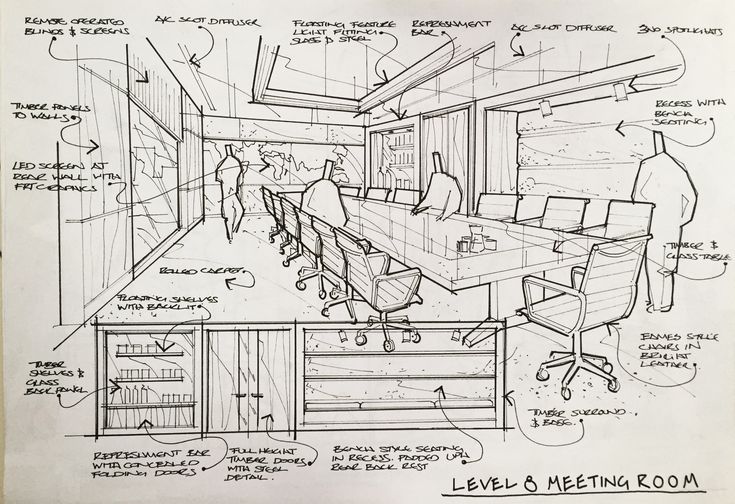 REMOTE OPERATED
BLINDS & SCREENS
A/C SLOT DIFFUSER
FLOATING FEATURE
LIGHT FITTING
GLASS & STEEL
REFRESHMENT
BAR
A/C SLOT DIFFUSER
3NO SPOTLIGHTS
TIMBER PANELS
TO WALLS
RECESS WITH
BENCH
SEATING
LED SCREEN AT
REAR WALL WITH
GRAPHICS
ROLLED CARPET
TIMBER &
GLASS TABLE
FLOATING SHELVES
WITH BACKLIT
EAMES STYLE
CHAIRS IN
LEATHER
TIMBER
SHELVES &
GLASS
BACK PANEL
TIMBER SURROUND
& BASE
REFRESHMENT BAR
WITH CONCEALED
FOLDING DOORS
FULL HEIGHT
TIMBER DOORS
WITH STEEL
DETAIL.
BENCH STYLE SEATING
IN RECESS. PADDED UPH
REAR BACK REST
LEVEL 8 MEETING ROOM